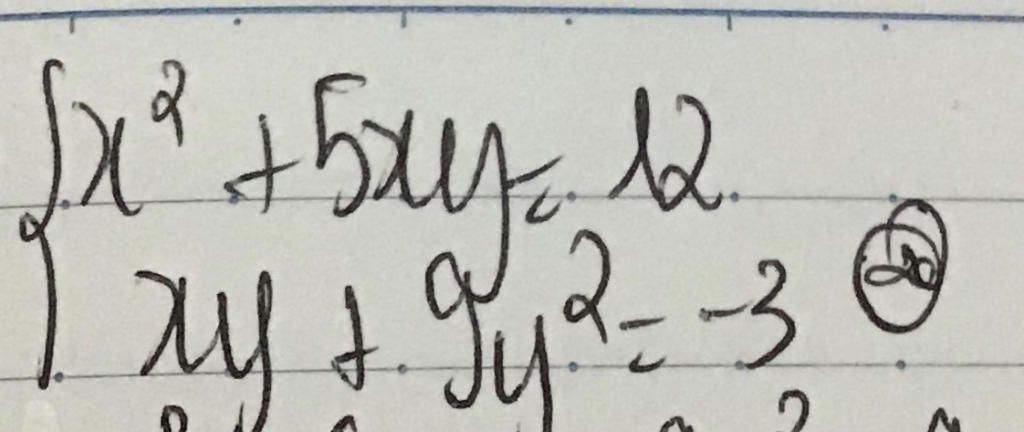 {x² + 5xy = 12
xy + 9y² = -3